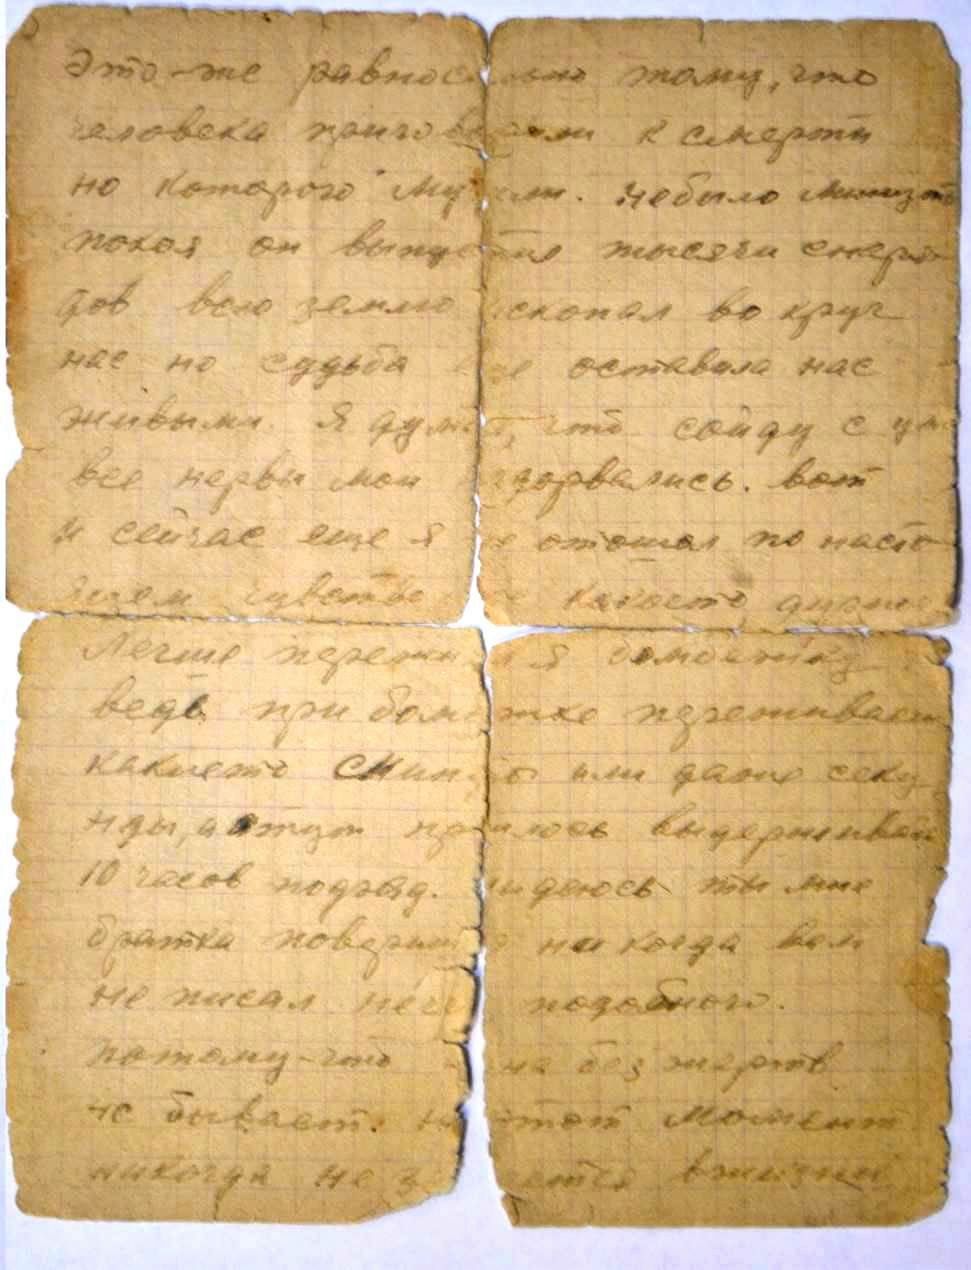 Это-же равноси льно тому, что
человека приговорили к смерти
но которого мучили. небыло минуты
покоя он выпустил тысячи снаря
дов всю землю ископал во круг
нас но судьба еще оставила нас
живыми. Я думал, что сойду с ума
все нервы мои издорвались. вот
и сейчас еще я не отошол по насто
ящем чувство какоето
Легче пережи я бомбежку
ведь при бомбежке переживаеш
какието минуты или даже секу
нды, а тут пришлось выдерживать
10 часов подряд. надеюсь ты мне
братка поверишь никогда вам
не писал подобного.
потому-что на без жертв
не бывает. Но этот момент
никогда не в жизни